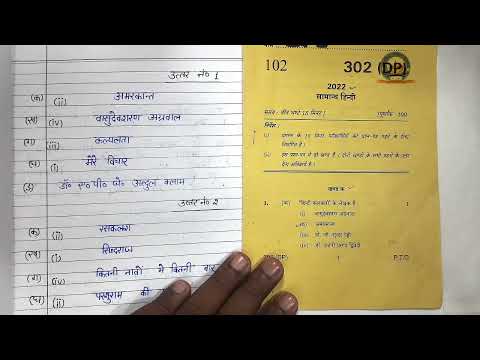 उत्तर नं० 1
(क) (ii) अमरकान्त
(ख) (iv) वासुदेवशरण अग्रवाल
(ग) (iii) कल्पलता
(घ) (i) मेरे विचार
(ङ) डॉ० ए०पी० जे० अब्दुल कलाम
उत्तर नं० 2
(क) (ii) रसकलश
(ख) (i) सिद्धराज
(ग) (iv) कितनी नावों में कितनी बार
(घ) (ii) परशुराम की
102 302 (DP)
2022
सामान्य हिन्दी
समय : तीन घण्टे 15 मिनट ] [ पूर्णांक : 100
निर्देश :
(i) प्रारम्भ के 15 मिनट परीक्षार्थियों को प्रश्न-पत्र पढ़ने के लिए निर्धारित हैं।
(ii) इस प्रश्न-पत्र में दो खण्ड हैं। दोनों खण्डों के सभी प्रश्नों के उत्तर देना अनिवार्य है।
खण्ड क
1. (क) के लेखक हैं
i)
302 (DP) 1 P.T.O.